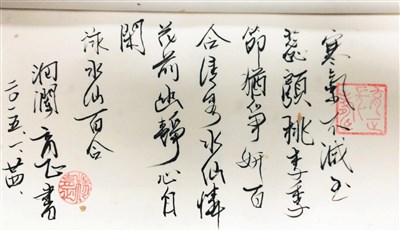 寒氣不減玉
蕊顏桃李季
節猶爭妍百
合清秀水仙憐
花前幽靜心自
閑
詠水仙百合
润澜育正書
二〇五、一、廿四、